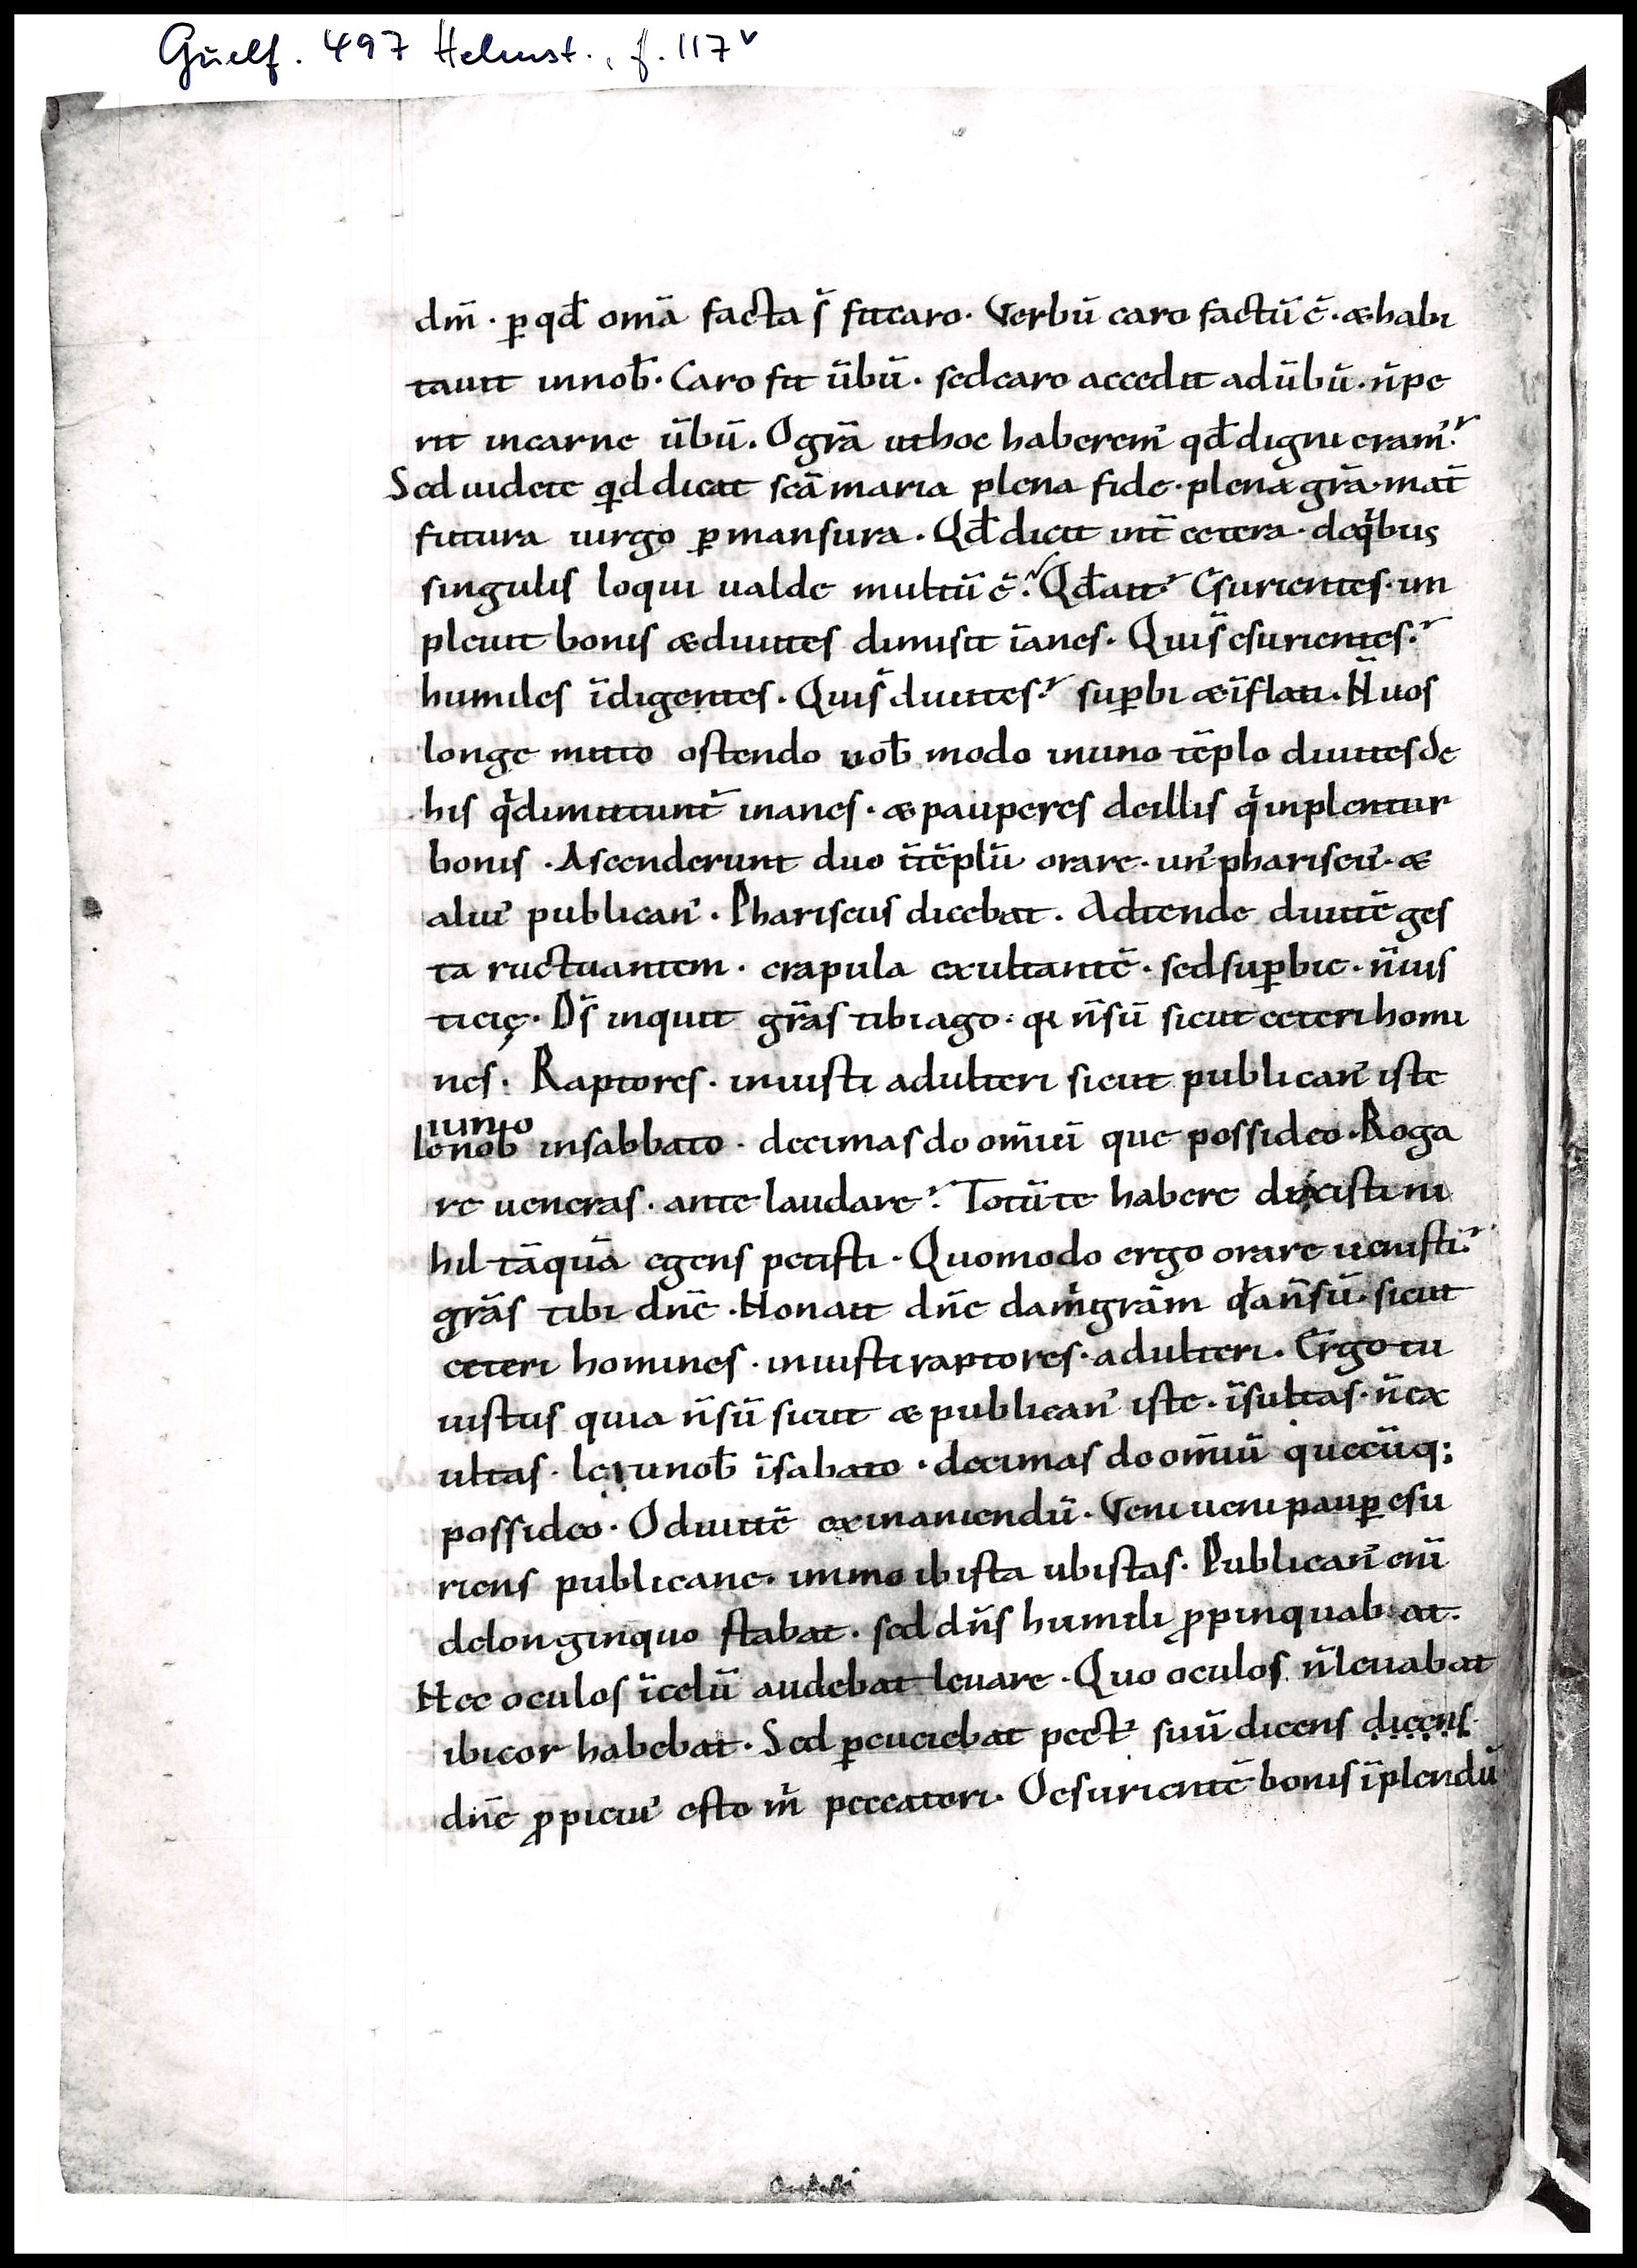 Guelf. 497 Helmst., f. 117ᵛ
dm̄ · ꝑ qđ om̄a facta s̄ fit caro · Verbū caro factū ē · & habi
tauit innob̄ · Caro fit ūbū · sed caro accedit ad ūbū · n̄ pe
rit in carne ūbū . O gr̄a ut hoc haberem᾽ qđ digni eram᾽ ?
Sed uidete qid dicat sc̄a maria plena fide · plena gr̄a · mat̄
futura uirgo ꝑmansura . Qđ dicit int̄ cetera · de qibus
singulis loqui ualde multū ē ? Qđ ait ? Esurientes · im
pleuit bonis & diuites dimisit īanes · Qui s̄ esurientes ?
humiles īdigentes · Qui s̄ diuites ? suꝑbi & īflati · N̄ uos
longe mitto ostendo uob̄ modo in uno tēplo diuites de
his qi dimittunt᷑ inanes · & pauperes de illis qi inplentur
bonis · Ascenderunt duo ī tēplū orare · un᾽ phariseu᾽ · &
aliu᾽ publican᾽ · Phariseus dicebat . Adtende diuitē ges
ta ructuantem · crapula exultantē · sed suꝑbie · n̄ ius
ticię · Ds̄ inquit gr̄as tibi ago · qi n̄ sū sicut ceteri homi
nes · Raptores · iniusti adulteri sicut publican᾽ iste
iunio
le nob insabbato · decimas do om̄iū que possideo · Roga
re ueneras · an te laudare ? Totū te habere dixisti ni
hil tāquā egens petisti · Quomodo ergo orare uenisti ?
gr̄as tibi dn̄e · Non ait dn̄e da mi gr̄am qia n̄ sū · sicut
ceteri homines · iniusti raptores · adulteri · Ergo tu
iustus quia n̄ sū sicut & publican᾽ iste · īsultas · n̄ ex
ultas · Ieiunob̄ īsabato · decimas do om̄iū quecūq;
possideo · O diuitē exinaniendū · Veni ueni pauꝑ esu
riens publicane · immo ibi sta ubi stas · Publican᾽ eni̅
de longinquo stabat · sed dn̄s humili ꝓpinquabat ·
Nec oculos ī celū audebat leuare · Quo oculos n̄ leuabat
ibi cor habebat · Sed ꝑcuciebat pect᾽ suū dicens dicens
dn̄e ꝓpiciu᾽ esto mi peccatori · O esurientē bonis īplendū